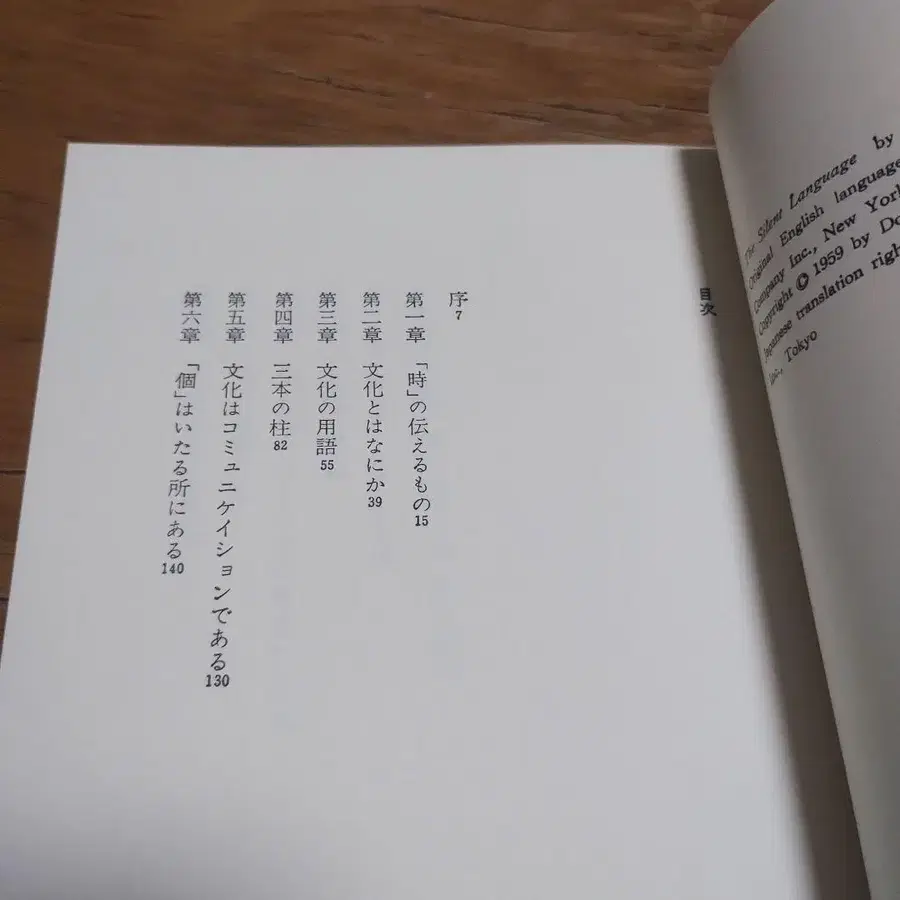 目次
序 7
第一章 「時」の伝えるもの 15
第二章 文化とはなにか 39
第三章 文化の用語 55
第四章 三本の柱 82
第五章 文化はコミュニケイションである 130
第六章 「個」はいたる所にある 140
The Silent Language by
Original English language
Company Inc., New York
Copyright © 1959 by
Japanese translation
Inc., Tokyo